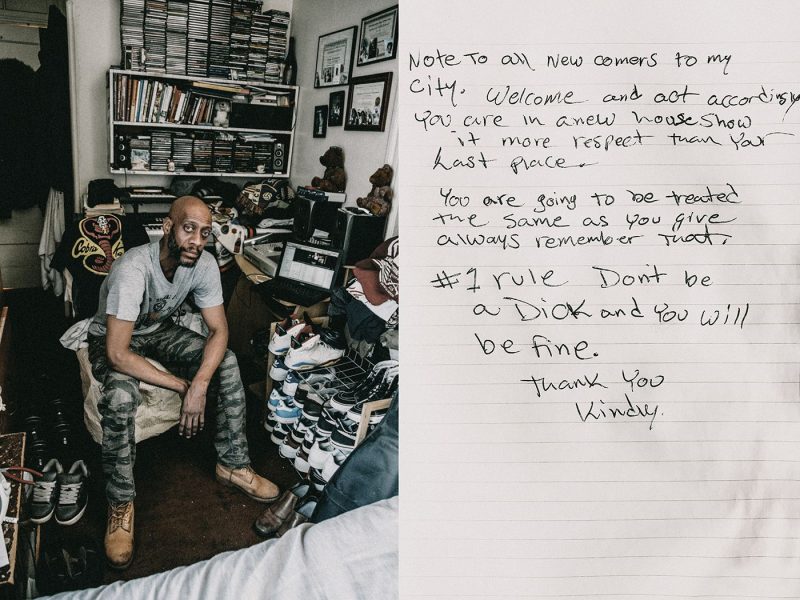 Cobra
Kai
Note To all New comers to my
City. Welcome and act accordingly
You are in a new house Show
it more respect than Your
Last place.
You are going to be treated
the same as You give
always remember that.
#1 rule Don't be
a Dick and You will
be fine.
Thank You
Kindly.